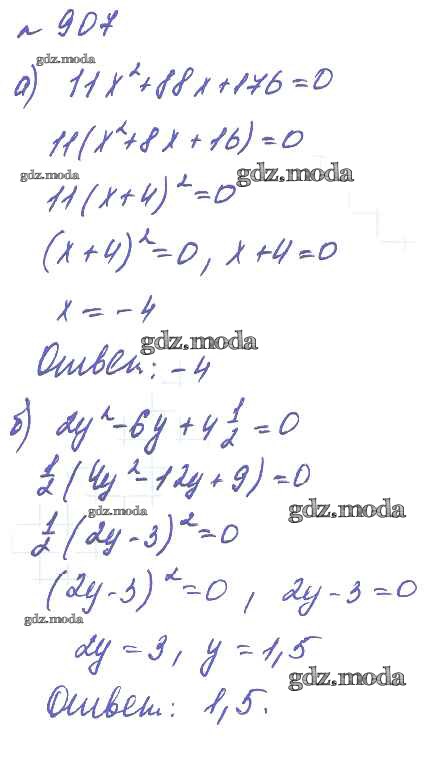 № 907
gdz.moda
а) 11x²+88x+176=0
11(x²+8x+16)=0
gdz.moda gdz.moda
11(x+4)²=0
(x+4)²=0, x+4=0
x=-4
gdz.moda
Ответ: -4
б) 2y²-6y+4 1/2=0
1/2(4y²-12y+9)=0
gdz.moda gdz.moda
1/2(2y-3)²=0
(2y-3)²=0, 2y-3=0
gdz.moda
2y=3, y=1,5
gdz.moda
Ответ: 1,5.